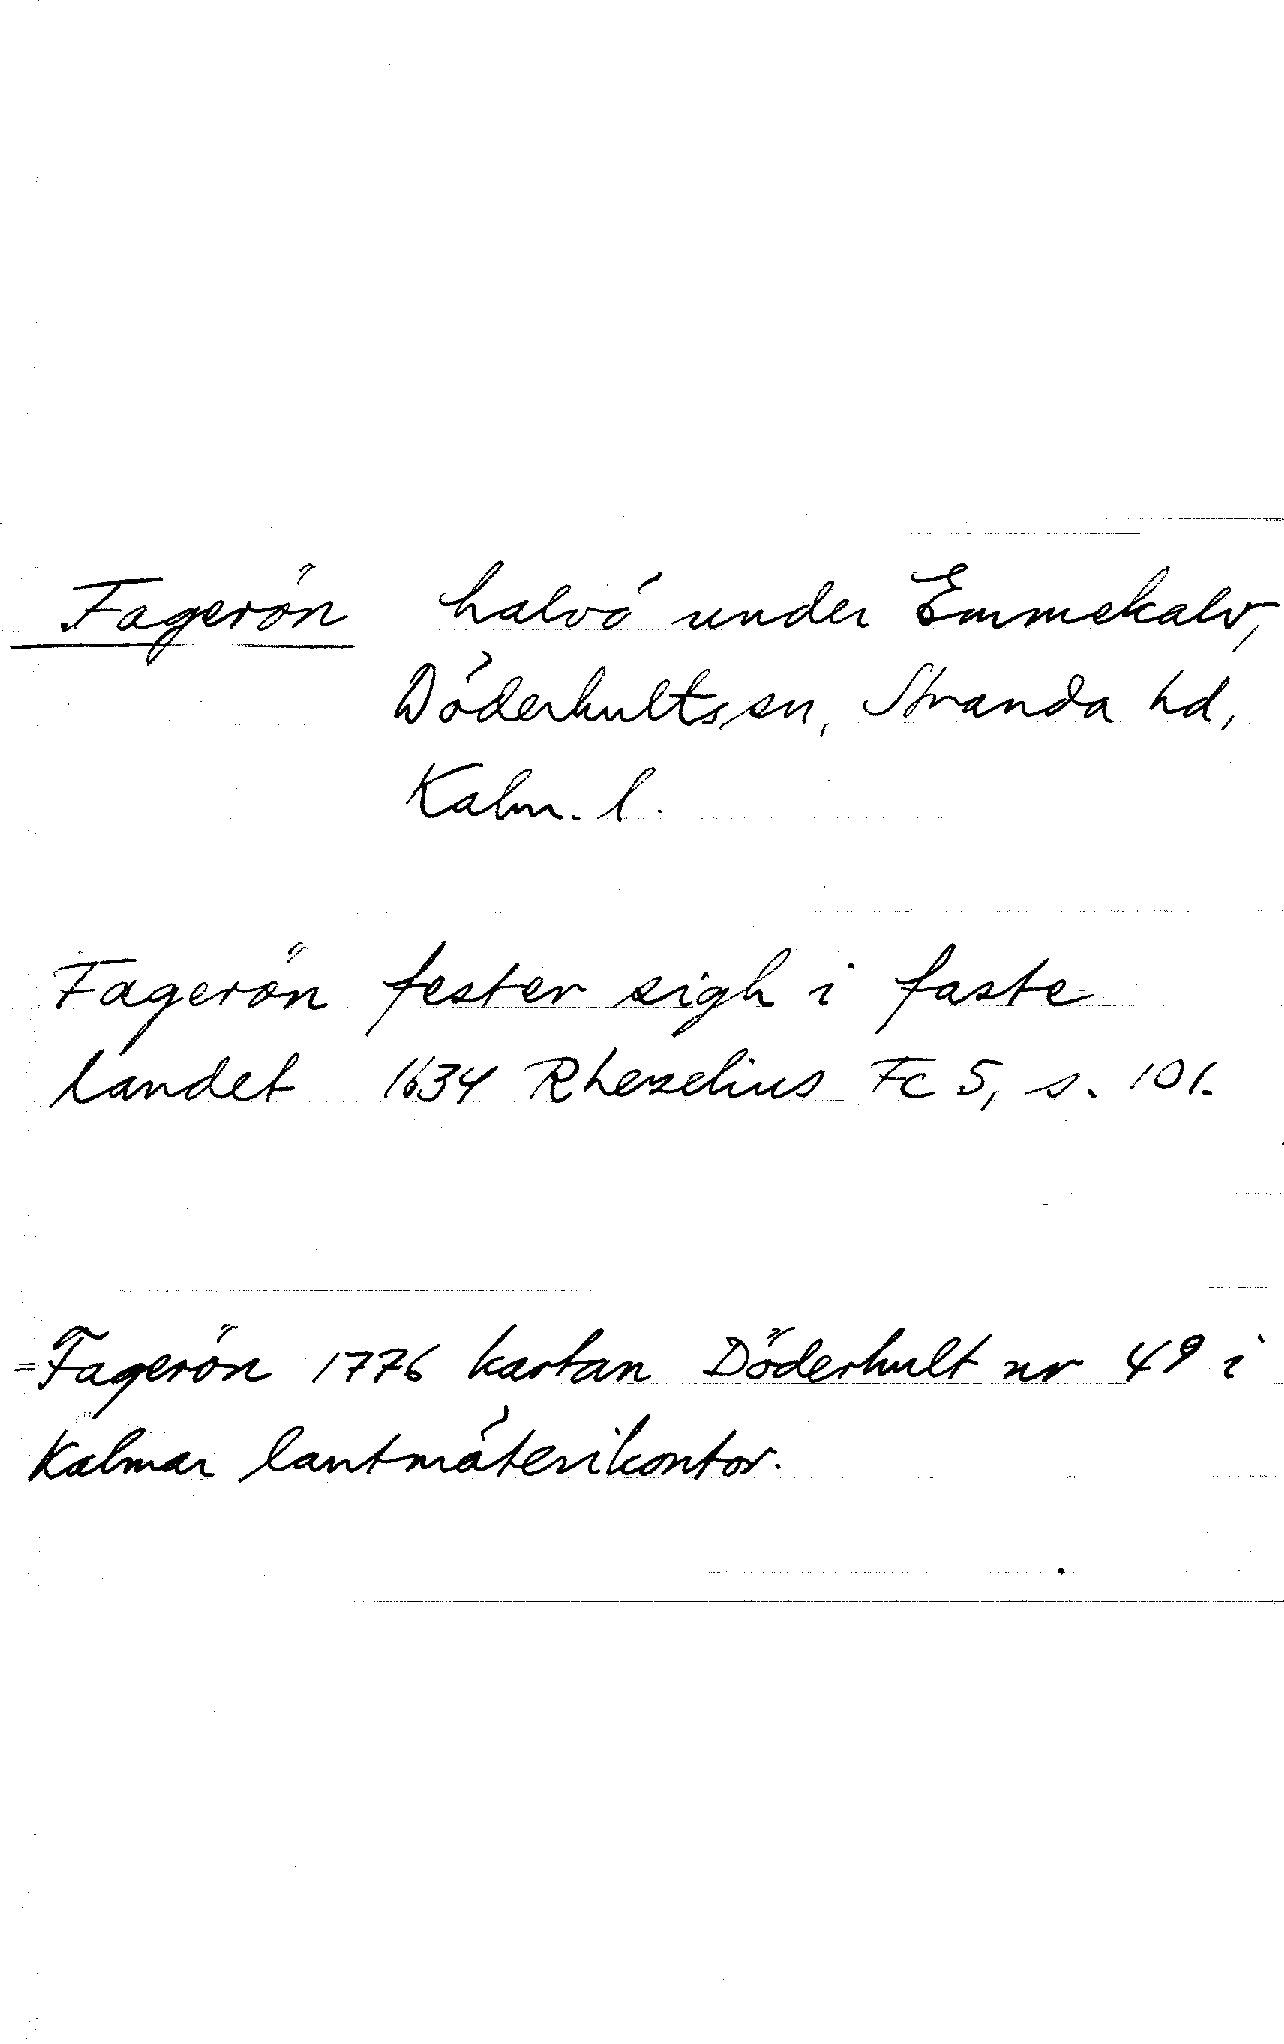 Fagerön halvö under Emmekalv,
Döderhults sn, Stranda hd,
Kalm. l.
Fagerön fester sigh i faste
landet 1634 Rhezelius Fc 5, s. 101.
=Fagerön 1776 kartan Döderhult nr 49 i
Kalmar lantmäterikontor.